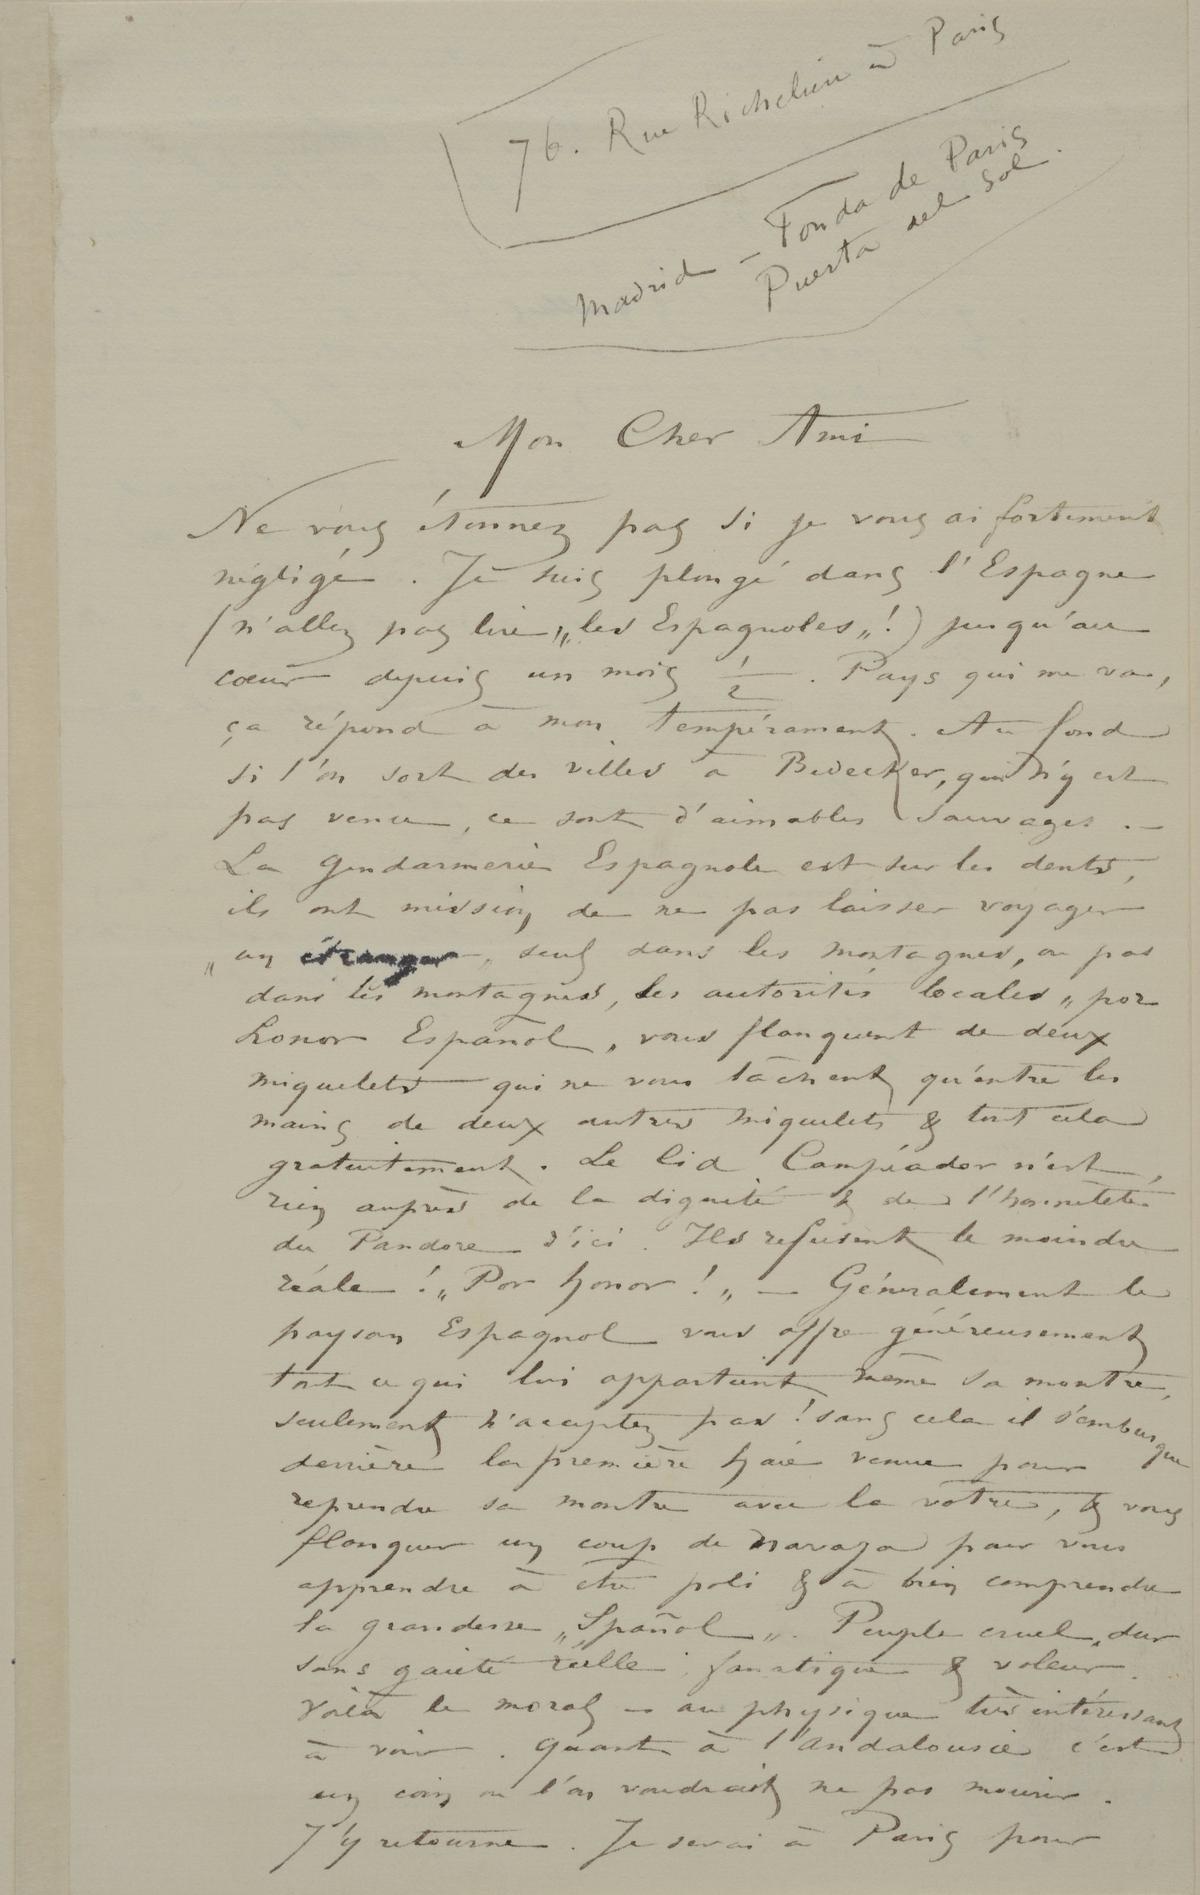 76. Rue Richelieu à Paris
Madrid — Fonda de Paris
Puerta del Sol.
Mon Cher Ami
Ne vous étonnez pas si je vous ai fortement
négligé. Je suis plongé dans l'Espagne
(n'allez pas lire „les Espagnoles„!) jusqu'au
cœur depuis un mois 1/2. Pays qui me va,
ça répond à mon tempérament. Au fond
si l'on sort des villes à Bedecker, qui n'y est
pas venu, ce sont d'aimables sauvages. —
La gendarmerie Espagnole est sur les dents,
ils ont mission de ne pas laisser voyager
„un étranger„ seul dans les montagnes, ou pas
dans les montagnes, les autorités locales „por
honor Español„ vous flanquent de deux
miquelets qui ne vous lâchent qu'entre les
mains de deux autres miquelets & tout cela
gratuitement. Le Cid Campéador n'est
rien auprès de la dignité & de l'honnêteté
du Pandore d'ici. Ils refusent le moindre
réale! „Por honor!„ — Généralement le
paysan Espagnol vous offre généreusement
tout ce qui lui appartient même sa montre,
seulement n'acceptez pas! sans cela il s'embusque
derrière la première haie venue pour
reprendre sa montre avec la vôtre, & vous
flanquer un coup de navaja pour vous
apprendre à être poli & à bien comprendre
la grandesse „Spañol„. Peuple cruel, dur
sans gaieté réelle, fanatique & voleur.
Voilà le moral — au physique très intéressant
à voir. Quant à l'Andalousie c'est
un coin où l'on voudrait ne pas mourir.
J'y retourne. Je serai à Paris pour